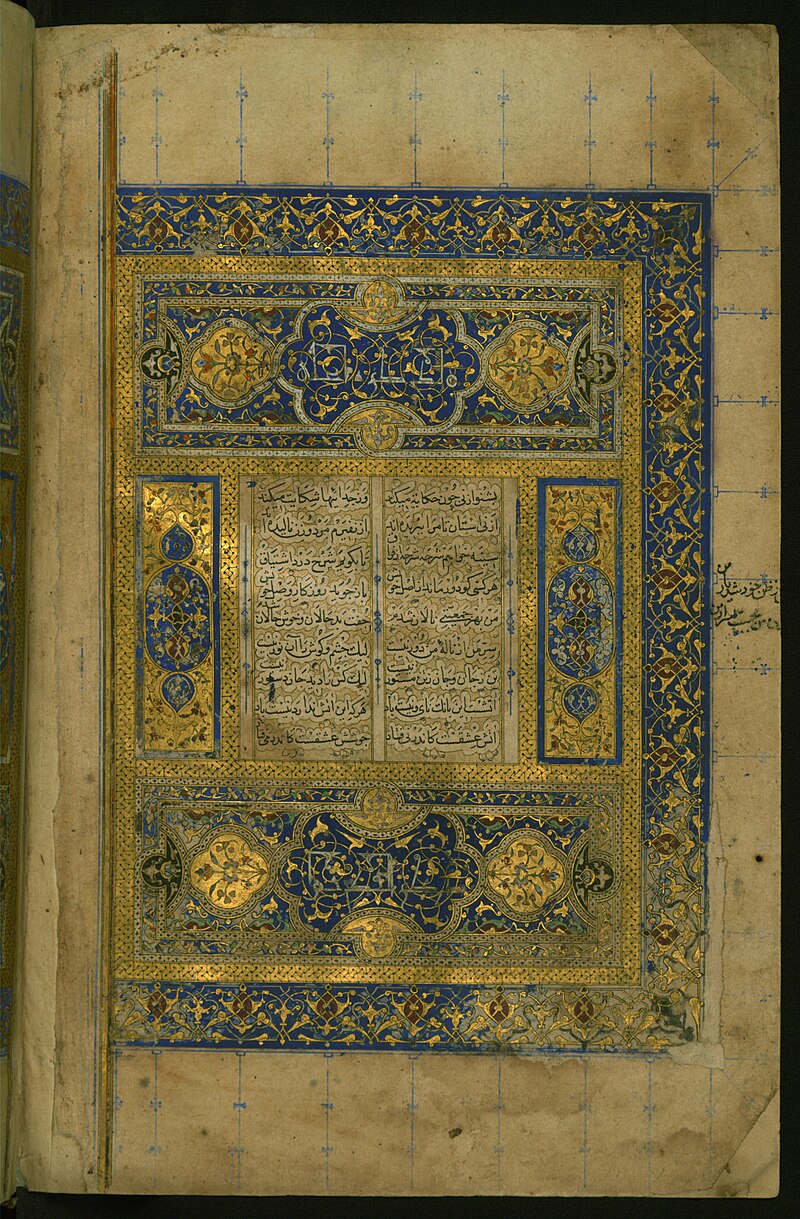 بشنو از نی چون حکایت میکند وز جداییها شکایت میکند
از نیستان تا مرا ببریده اند از نفیرم مرد و زن نالیده اند
سینه خواهم شرحه شرحه از فراق تا بگویم شرح درد اشتیاق
هر کسی کو دور ماند از اصل خویش باز جوید روزگار وصل خویش
من بهر جمعیتی نالان شدم جفت بدحالان و خوش حالان شدم
سر من از ناله من دور نیست لیک چشم و گوش را آن نور نیست
تن ز جان و جان ز تن مستور نیست لیک کس را دید جان دستور نیست
آتشست آن بانک نای و نیست باد هر که این آتش ندارد نیست باد
آتش عشقست کاندر نی فتاد جوشش عشقست کاندر می فتاد